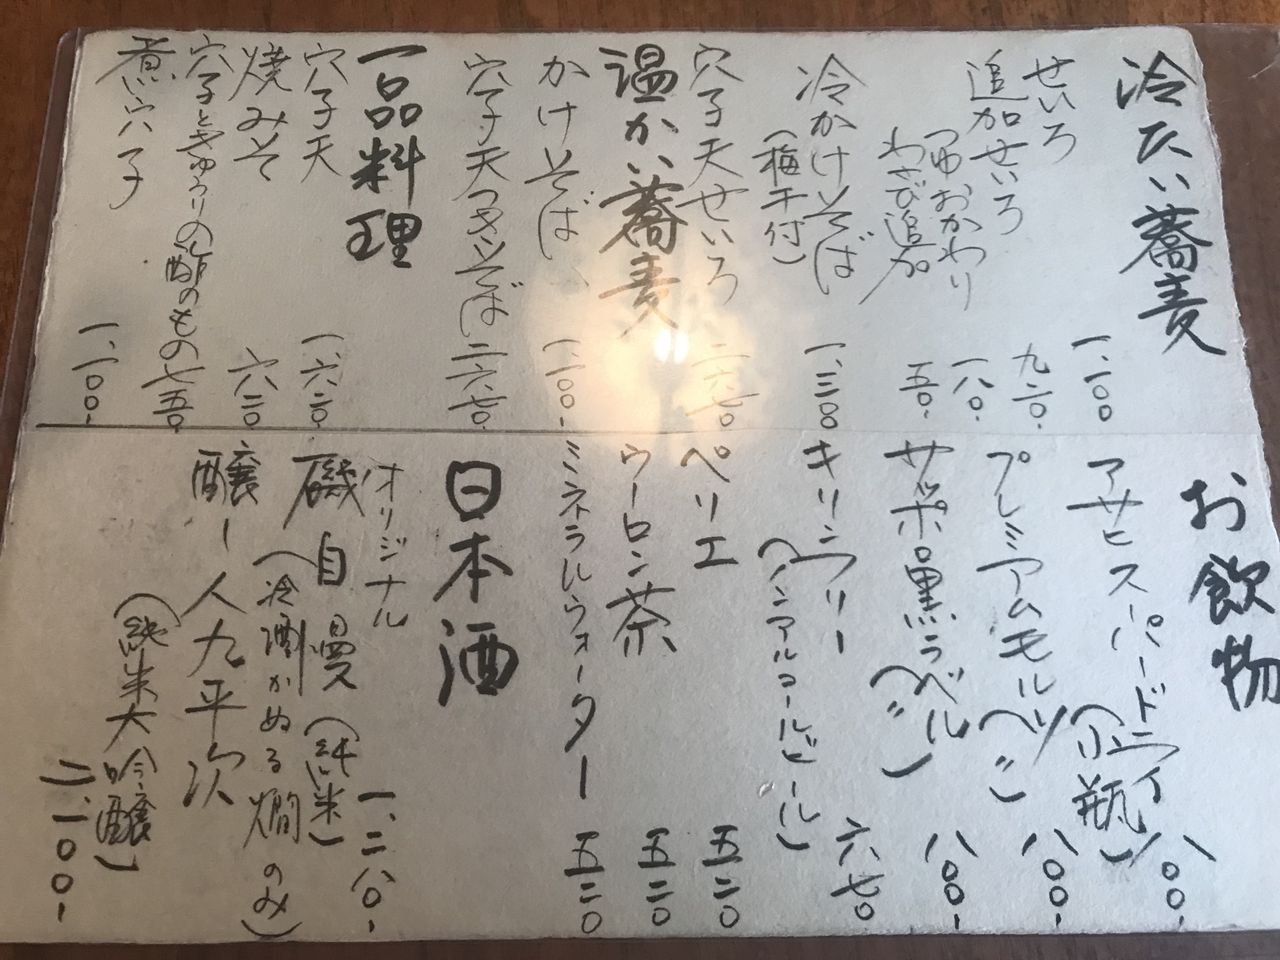 冷たい蕎麦
せいろ 一、一〇〇
追加せいろ 九二〇
つゆおかわり 一八〇.
わさび追加 五〇.
冷かけそば 一、三二〇
（梅干付）
穴子天せいろ 二、六七〇
温かい蕎麦
かけそば 一、一〇〇-
穴子天ヌキそば 二、六七〇
一品料理
穴子天 一、六二〇
焼みそ 六八〇
穴子ときゅうりの酢のもの 七五〇
煮穴子 一、一〇〇-
お飲物
アサヒスーパードライ
（小瓶） 八〇〇-
プレミアムモルツ（〃） 八〇〇-
サッポロ黒ラベル（〃） 八〇〇-
キリンフリー
（ノンアルコールビール） 六七〇
ペリエ 五二〇
ウーロン茶 五二〇
ミネラルウォーター 五二〇
日本酒
オリジナル
磯自慢（純米） 一、二八〇-
（冷酒かぬる燗のみ）
醸し人九平次
（純米大吟醸） 二、一〇〇-